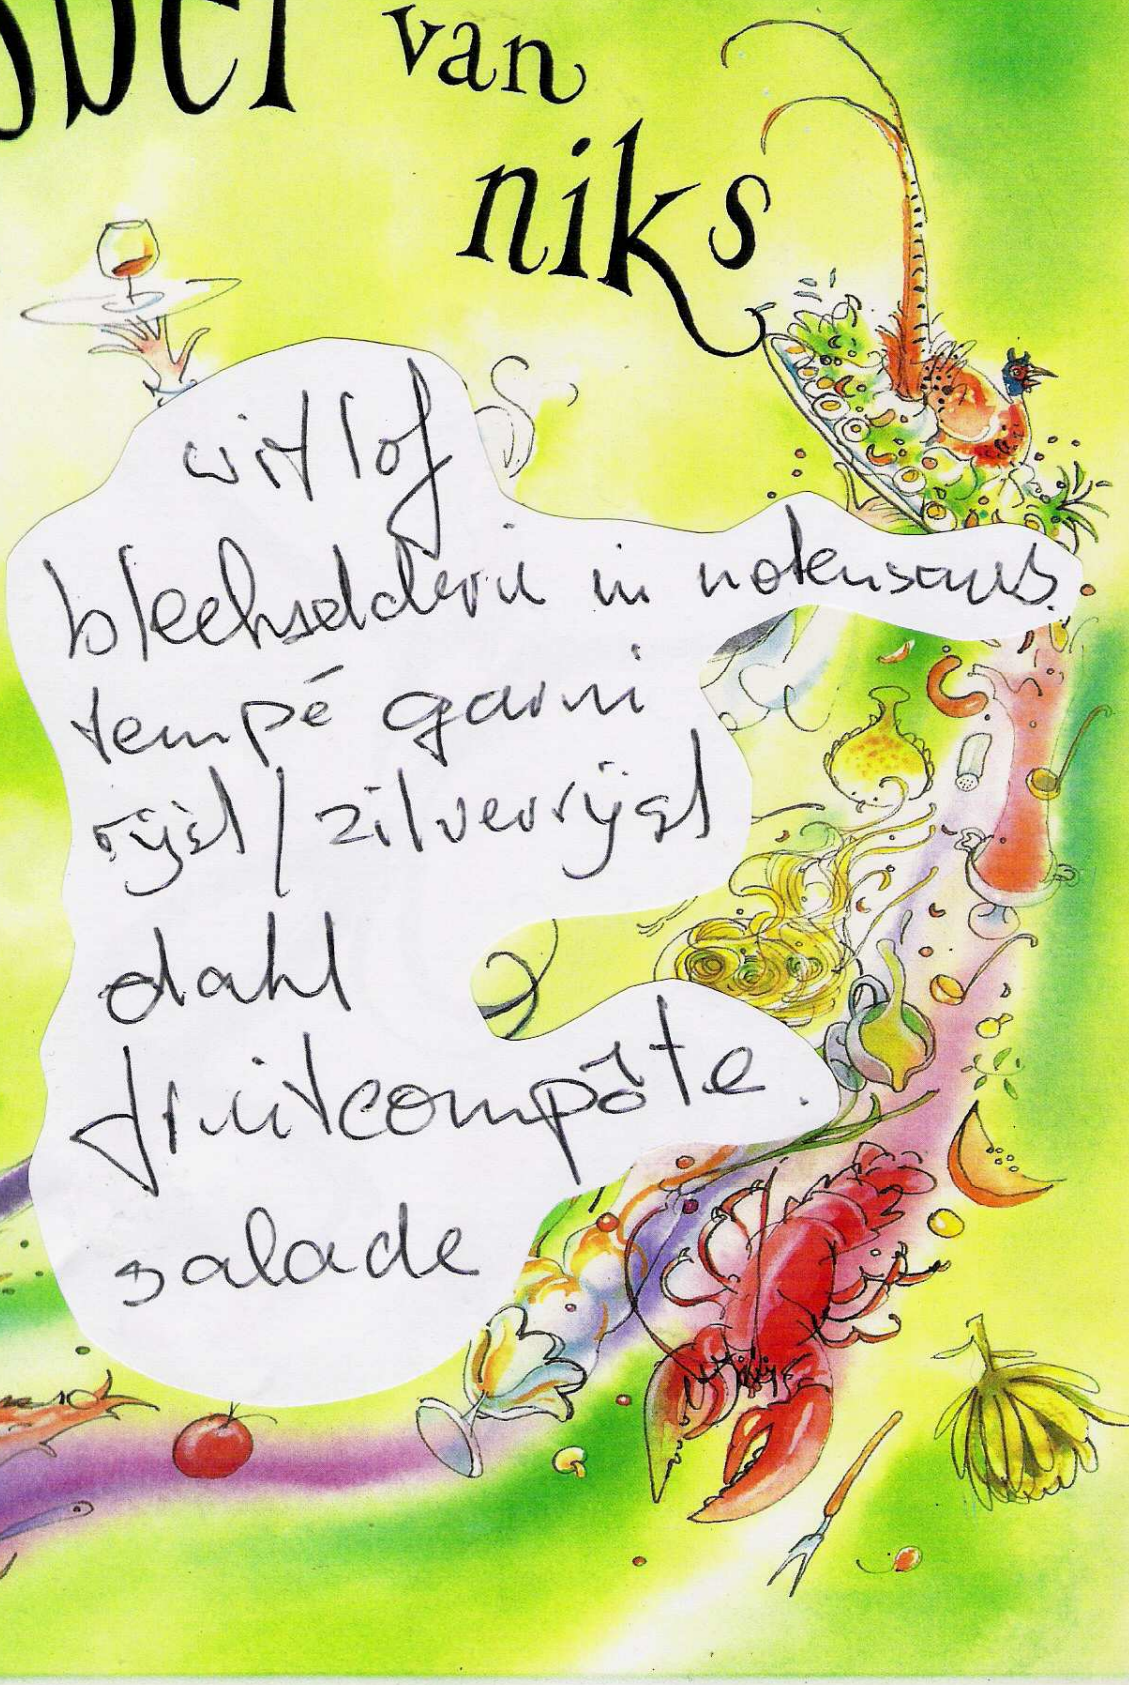 van
niks
witlof
bleekselderie in notensaus.
tempé garni
rijst / zilverrijst
dahl
fruitcompôte.
salade